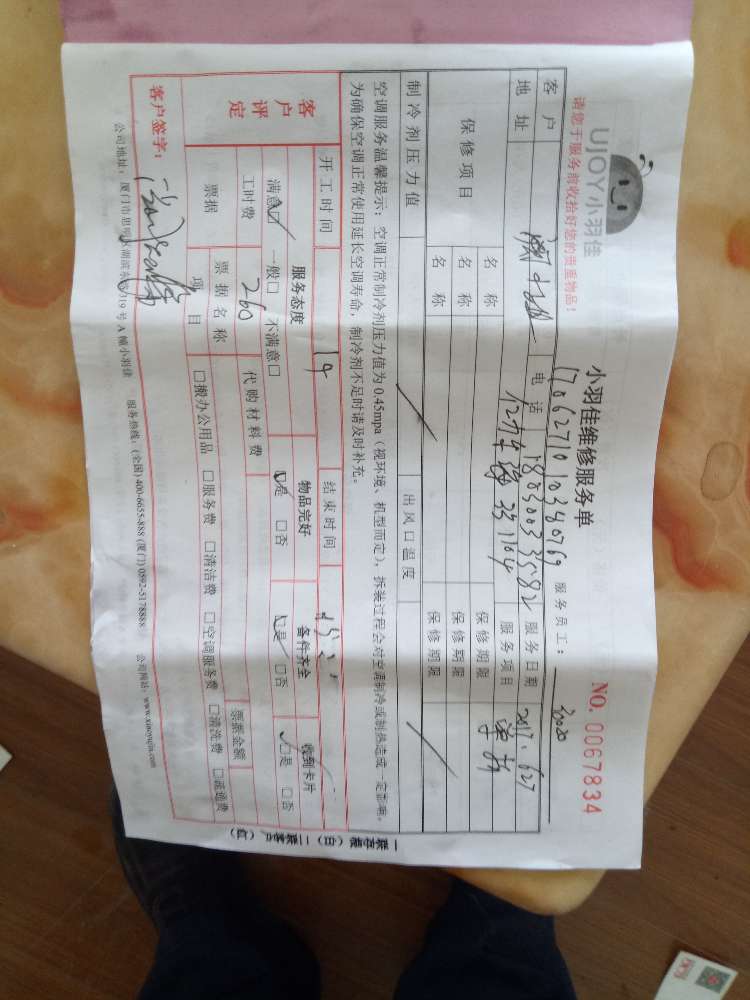 UJOY小羽佳
小羽佳维修服务单
NO. 0067834
请您于服务前收拾好您的贵重物品！
17062710340769
服务员工：
客户
电话 18030033582
服务日期 2017.627
地址
服务项目 单拆
保修项目
名称
保修期限
名称
保修期限
名称
保修期限
制冷剂压力值
出风口温度
空调服务温馨提示：空调正常制冷剂压力值为 0.45mpa（视环境、机型而定），拆装过程会对空调制冷或制热造成一定影响。
为确保空调正常使用延长空调寿命，制冷剂不足时请及时补充。
客户评定
开工时间 14
结束时间
服务态度
物品完好
备件齐全
收到卡片
满意☑ 一般□ 不满意□
☑是 □否
☑是 □否
☑是 □否
工时费 260
代购材料费
票据
票据名称
票据金额
项目
□搬办公用品 □服务费 □清洁费 □空调服务费 □清洗费 □疏通费
客户签字：
公司地址：厦门市思明区湖滨东路319号A幢小羽佳 服务热线：(全国) 400-6655-888 (厦门) 0592-5178888 公司网站：www.xiaoyujia.com
一联存根（白） 二联客户（红）